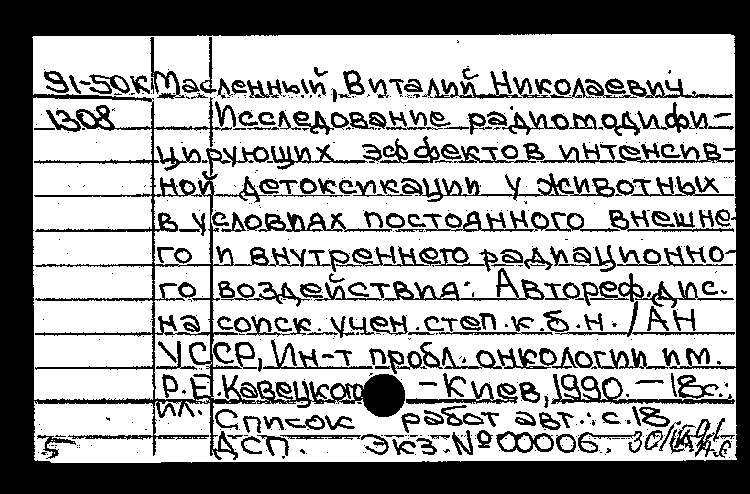 91-50к Масленный, Виталий Николаевич.
1308 Исследование радиомодифи-
цирующих эффектов интенсив-
ной детоксикации у животных
в условиях постоянного внешне-
го и внутреннего радиационно-
го воздействия: Автореф. дис.
на соиск. учен. степ. к. б. н. / АН
УССР, Ин-т пробл. онкологии им.
Р.Е. Кавецкого – Киев, 1990. – 18с.:
ил. Список работ авт.: с. 18
5 ДСП. Экз. № 00006.